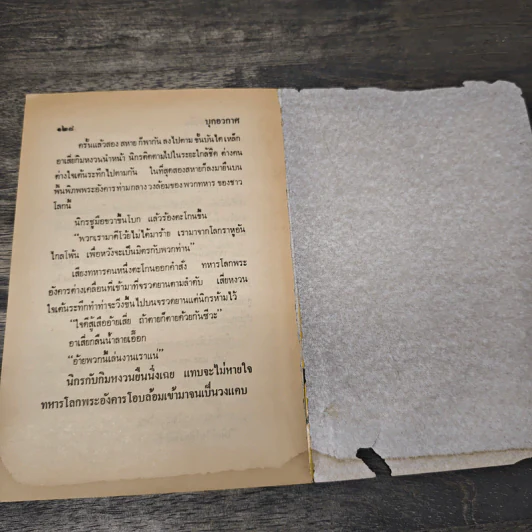 ๑๒๘
บุกอวกาศ
ครั้นแล้วสอง สหาย ก็พากัน ลงไปตาม ขั้นบันได เหล็ก
อาเสี่ยกิมหงวนนำหน้า นิกรติดตามไปในระยะใกล้ชิด ต่างคน
ต่างใจเต้นระทึกไปตามกัน ในที่สุดสองสหายก็ลงมายืนบน
พื้นพิภพพระอังคาร ท่ามกลาง วงล้อมของ พวกทหาร ของชาว
โลกนี้
นิกรชูมือขวาขึ้นโบก แล้วร้องตะโกนขึ้น
“พวกเรามาดีโว้ยไม่ได้มาร้าย เรามาจากโลกราหูอัน
ไกลโพ้น เพื่อหวังจะเป็นมิตรกับพวกท่าน”
เสียงทหารคนหนึ่งตะโกนออกคำสั่ง ทหารโลกพระ
อังคารต่างเคลื่อนที่เข้ามาที่จรวดยานตามลำดับ เสี่ยหงวน
ใจเต้นระทึกทำท่าจะวิ่งขึ้นไปบนจรวดยานแต่นิกรห้ามไว้
“ใจดีสู้เสืออ้ายเสี่ย ถ้าตายก็ตายด้วยกันซีวะ”
อาเสี่ยกลืนน้ำลายเอื๊อก
“อ้ายพวกนี้เล่นงานเราแน่”
นิกรกับกิมหงวนยืนนิ่งเฉย แทบจะไม่หายใจ
ทหารโลกพระอังคารโอบล้อมเข้ามาจนเป็นวงแคบ